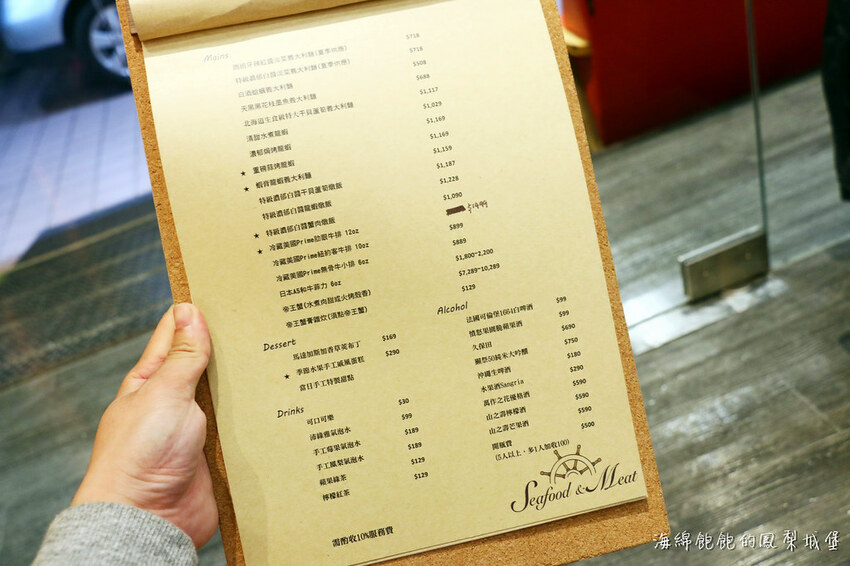 Mains
西班牙辣紅醬淡菜義大利麵(夏季供應) $718
特級濃郁白醬淡菜義大利麵(夏季供應) $718
白酒蛤蠣義大利麵 $508
天使黑花枝墨魚義大利麵 $688
北海道生食級特大干貝蘆筍義大利麵 $1,117
清甜水煮龍蝦 $1,029
濃郁焗烤龍蝦 $1,169
★ 薑磺蒜烤龍蝦 $1,169
★ 蝦膏龍蝦義大利麵 $1,159
特級濃郁白醬干貝蘆筍燉飯 $1,187
特級濃郁白醬龍蝦燉飯 $1,228
★ 特級濃郁白醬蟹肉燉飯 $1,090
★ 冷藏美國Prime肋眼牛排 12oz $1489
冷藏美國Prime紐約客牛排 10oz $899
冷藏美國Prime無骨牛小排 6oz $889
日本A5和牛菲力 6oz $1,800~2,200
帝王蟹(水煮肉甜或火烤殼香) $7,289~10,289
帝王蟹膏雜炊(須點帝王蟹) $129
Dessert
馬達加斯加香草莢布丁 $169
★ 季節水果手工戚風蛋糕 $290
當日手工特製甜點
Drinks
可口可樂 $30
沛綠雅氣泡水 $99
手工莓果氣泡水 $189
手工鳳梨氣泡水 $189
蘋果綠茶 $129
檸檬紅茶 $129
Alcohol
法國可倫堡1664白啤酒 $99
憤怒果園脆蘋果酒 $99
久保田 $690
獺祭50純米大吟釀 $750
沖繩生啤酒 $180
水果酒Sangria $290
萬作之花優格酒 $590
山之壽檸檬酒 $590
山之壽芒果酒 $590
開瓶費 $500
(5人以上，多1人加收100)
Seafood & Meat
需酌收10%服務費
海綿飽飽的鳳梨城堡